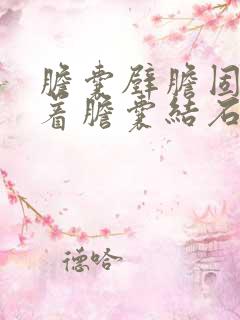 膽囊壁膽固
着膽囊結石
德哈